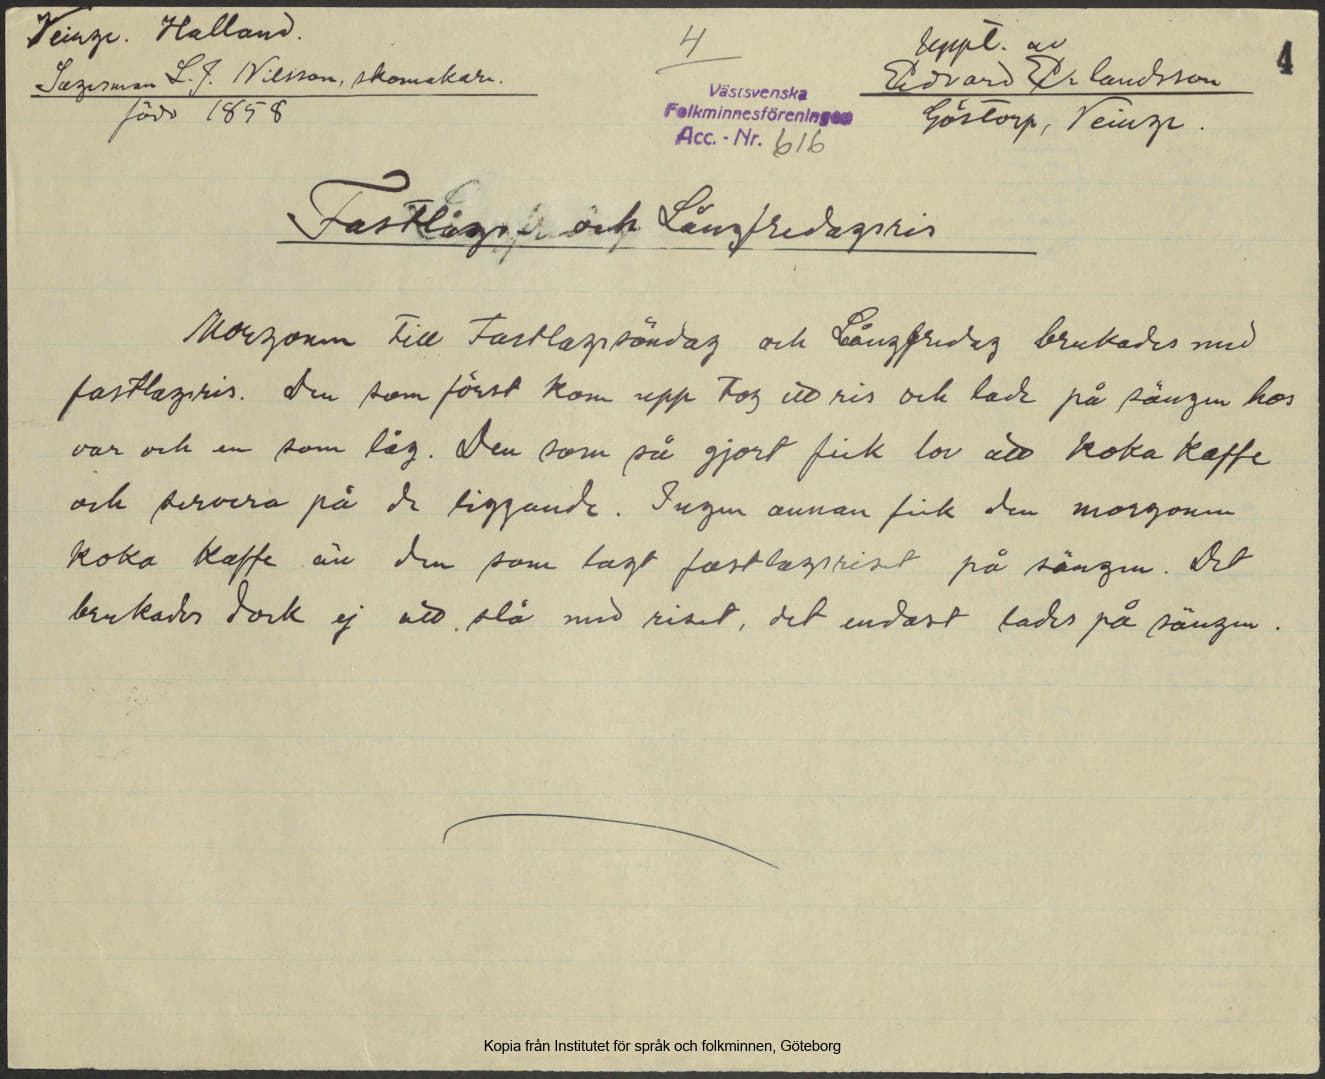 Veinge. Halland.
Sagesman L. J. Nilsson, skomakare.
född 1858
4
Västsvenska
Folkminnesföreningen
Acc. - Nr. 616
Uppt. av
Edvard Erlandsson
Göstorp, Veinge.
4
Fastlags och Långfredagsris
Morgonen till Fastlagssöndag och Långfredag brukades med
fastlagsris. Den som först kom upp tog ett ris och lade på sängen hos
var och en som låg. Den som så gjort fick lov att koka kaffe
och servera på de liggande. Ingen annan fick den morgonen
koka kaffe än den som lagt fastlagsriset på sängen. Det
brukades dock ej att slå med riset, det endast lades på sängen.
Kopia från Institutet för språk och folkminnen, Göteborg